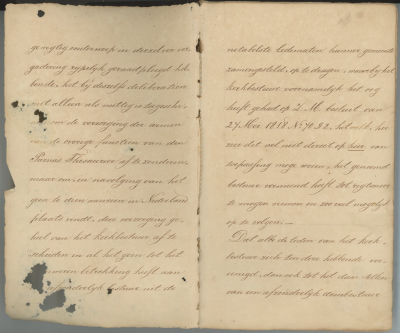 gewigtig onderwerp in dezelve ver-
gadering rijpelijk geraadpleegd heb-
bende, het bij dezelfs deliberatien
niet alleen als nuttig is
om de verzorging der armen
van de overige functien van den
Parnas Thesaurier af te zonderen,
maar om, in navolging van het
geen te dien aanzien in Nederland
plaats vindt, die verzorging ge-
heel van het Kerkbestuur af te
scheiden en al het geen tot het
armwezen betrekking heeft aan
afzonderlijk bestuur uit de
notabelste Ledematen hunner gemeente
zamengesteld, op te dragen, waarbij het
Kerkbestuur voornamelijk het oog
heeft gehad op Z. M. besluit van
27 Mei 1818 N° 70 & 2, het welk, hoe
zeer dat wel niet direct op hier van
toepassing moge wezen, het genoemd
bestuur vermeend heeft tot rigtsnoer
te mogen nemen en zoo veel mogelijk
op te volgen. —
Dat alle de leden van het Kerk-
bestuur zich ten dien hebbende ver-
eenigd, dan ook tot het daar stellen
van een afzonderlijk armbestuur